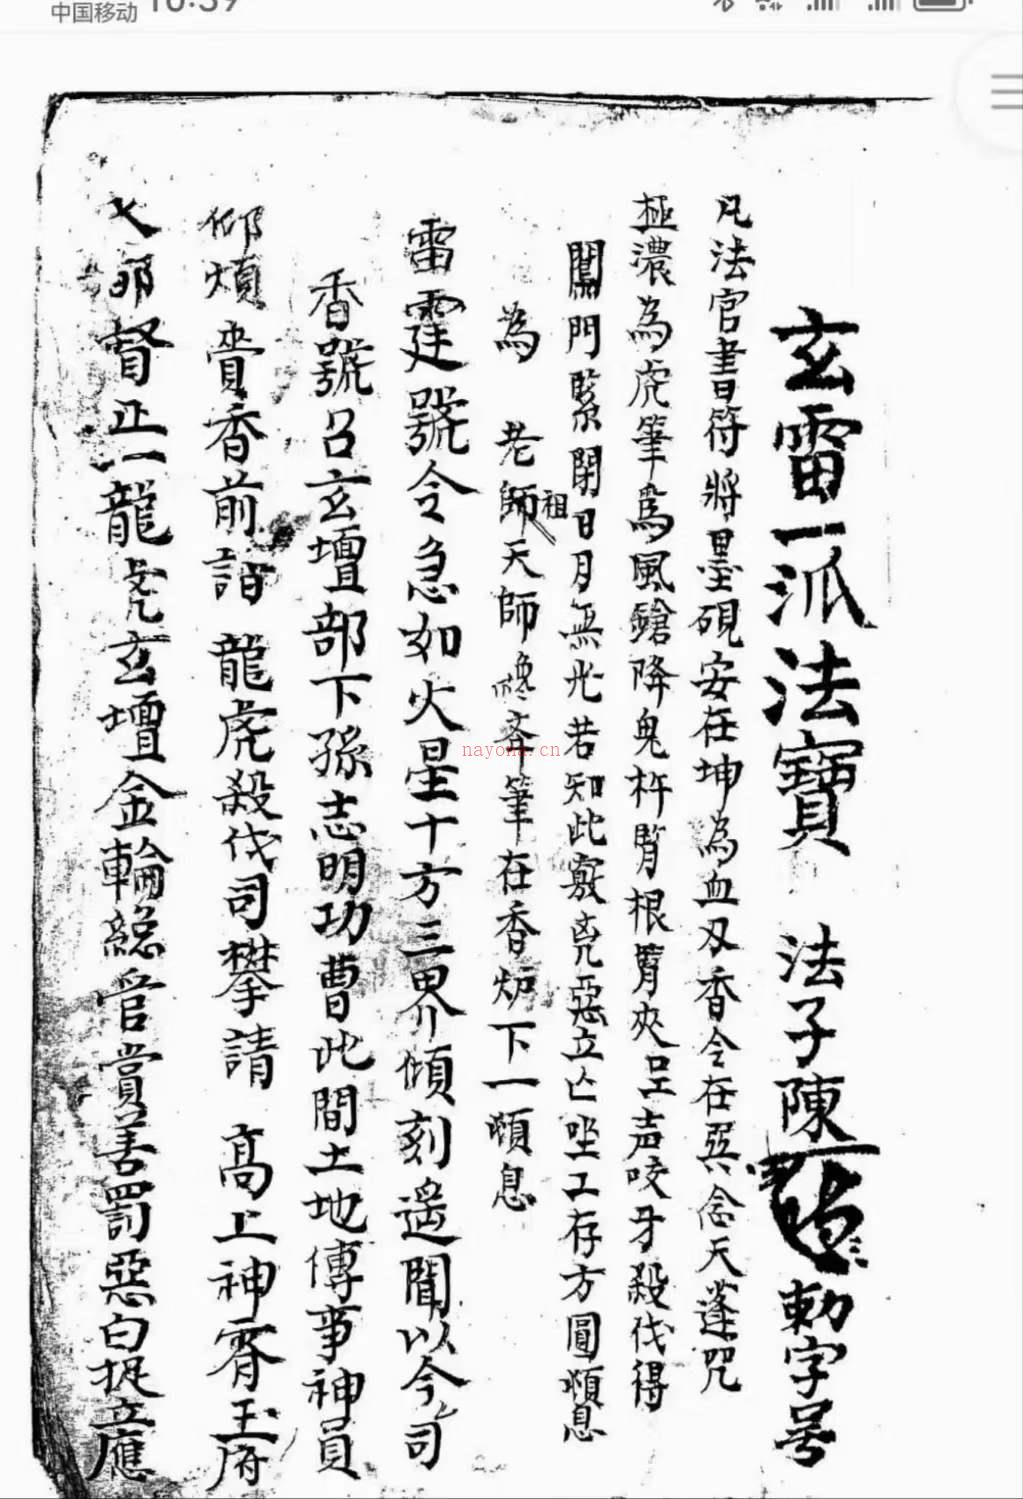 中国移动 10:39
玄雷一派法寶 法子陳 勅字号
凡法官書符將墨硯安在坤為血刃香令在巽念天蓬咒
極濃為虎筆為風鎗降鬼杵腎根腎夾呈声咬牙殺伐得
閗門緊閉日月無光若知此竅兇惡立亡坐工存方圓順息
為 老師祖天師 筆在香炉下一順息
雷霆號令急如火星十方三界傾刻遥聞以今司
香號召玄壇部下孫志明功曹此間土地傳事神員
仰煩賫香前詣 龍虎殺伐司攀請 高上神霄玉府
大都督正一龍虎玄壇金輪總官賞善罰惡白捉立應
nayona.cn